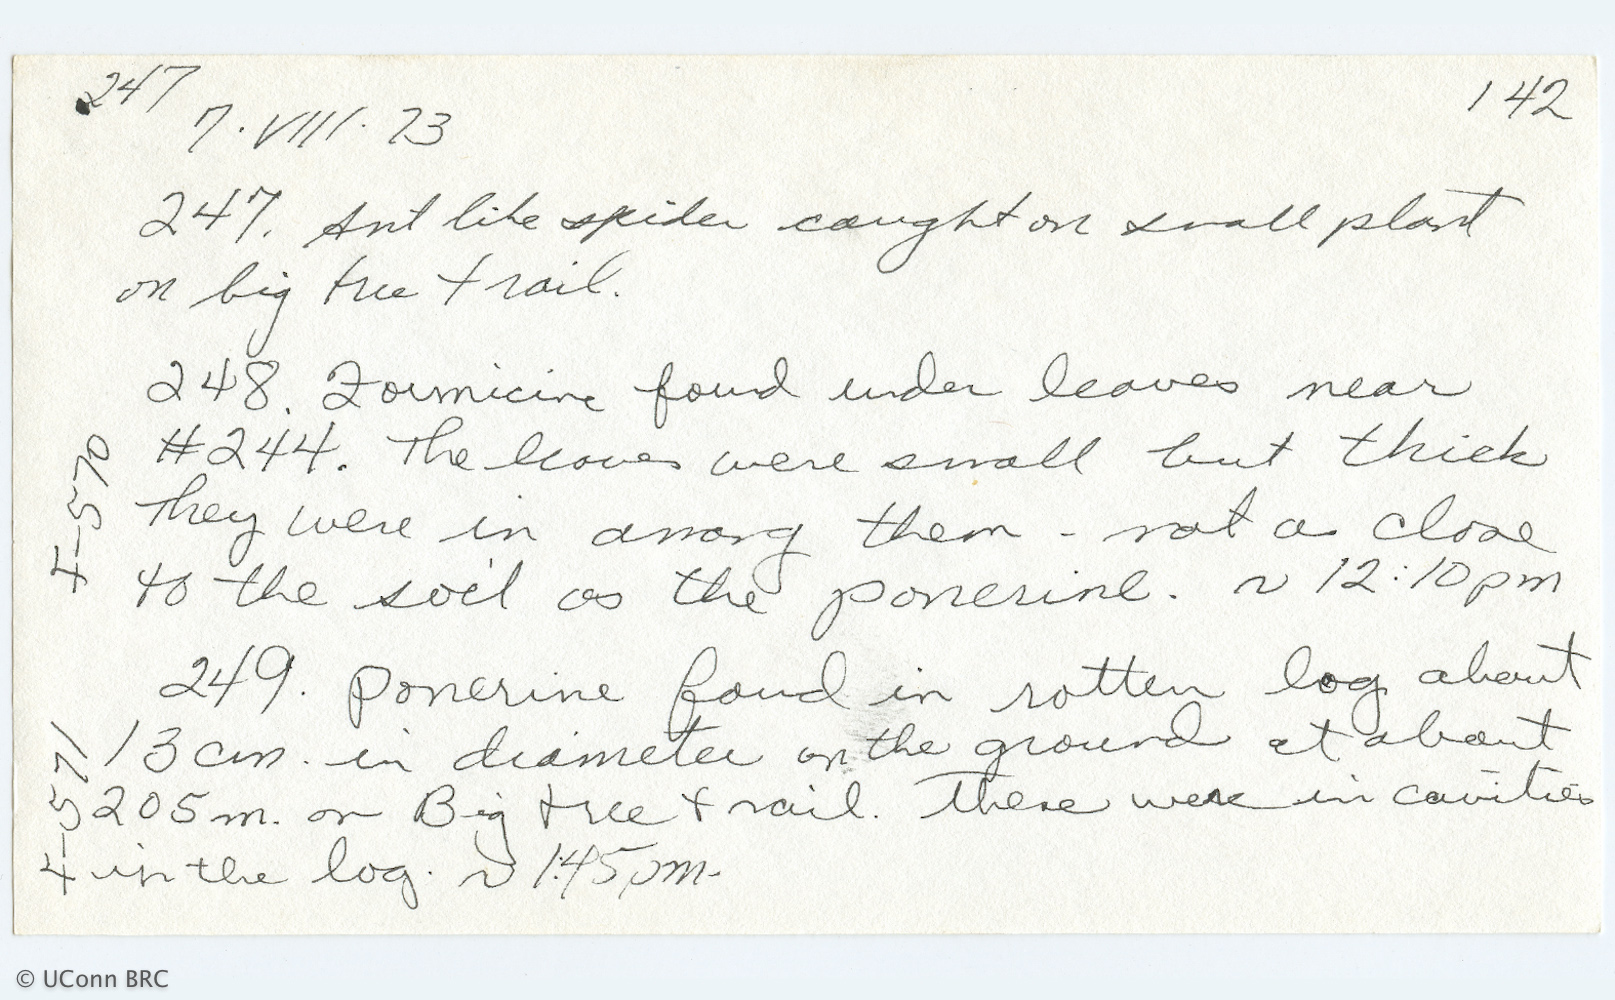 247
142
7·VIII·73
247. Ant like spider caught on small plant
on big tree trail.
248. Formicine found under leaves near
#244. The leaves were small but thick
They were in among them - not as close
to the soil as the ponerine. ~ 12:10pm
4-570
249. Ponerine found in rotten log about
13 cm. in diameter on the ground at about
205 m. on Big tree trail. These were in cavities
in the log. ~ 1:45pm.
4-571
© UConn BRC